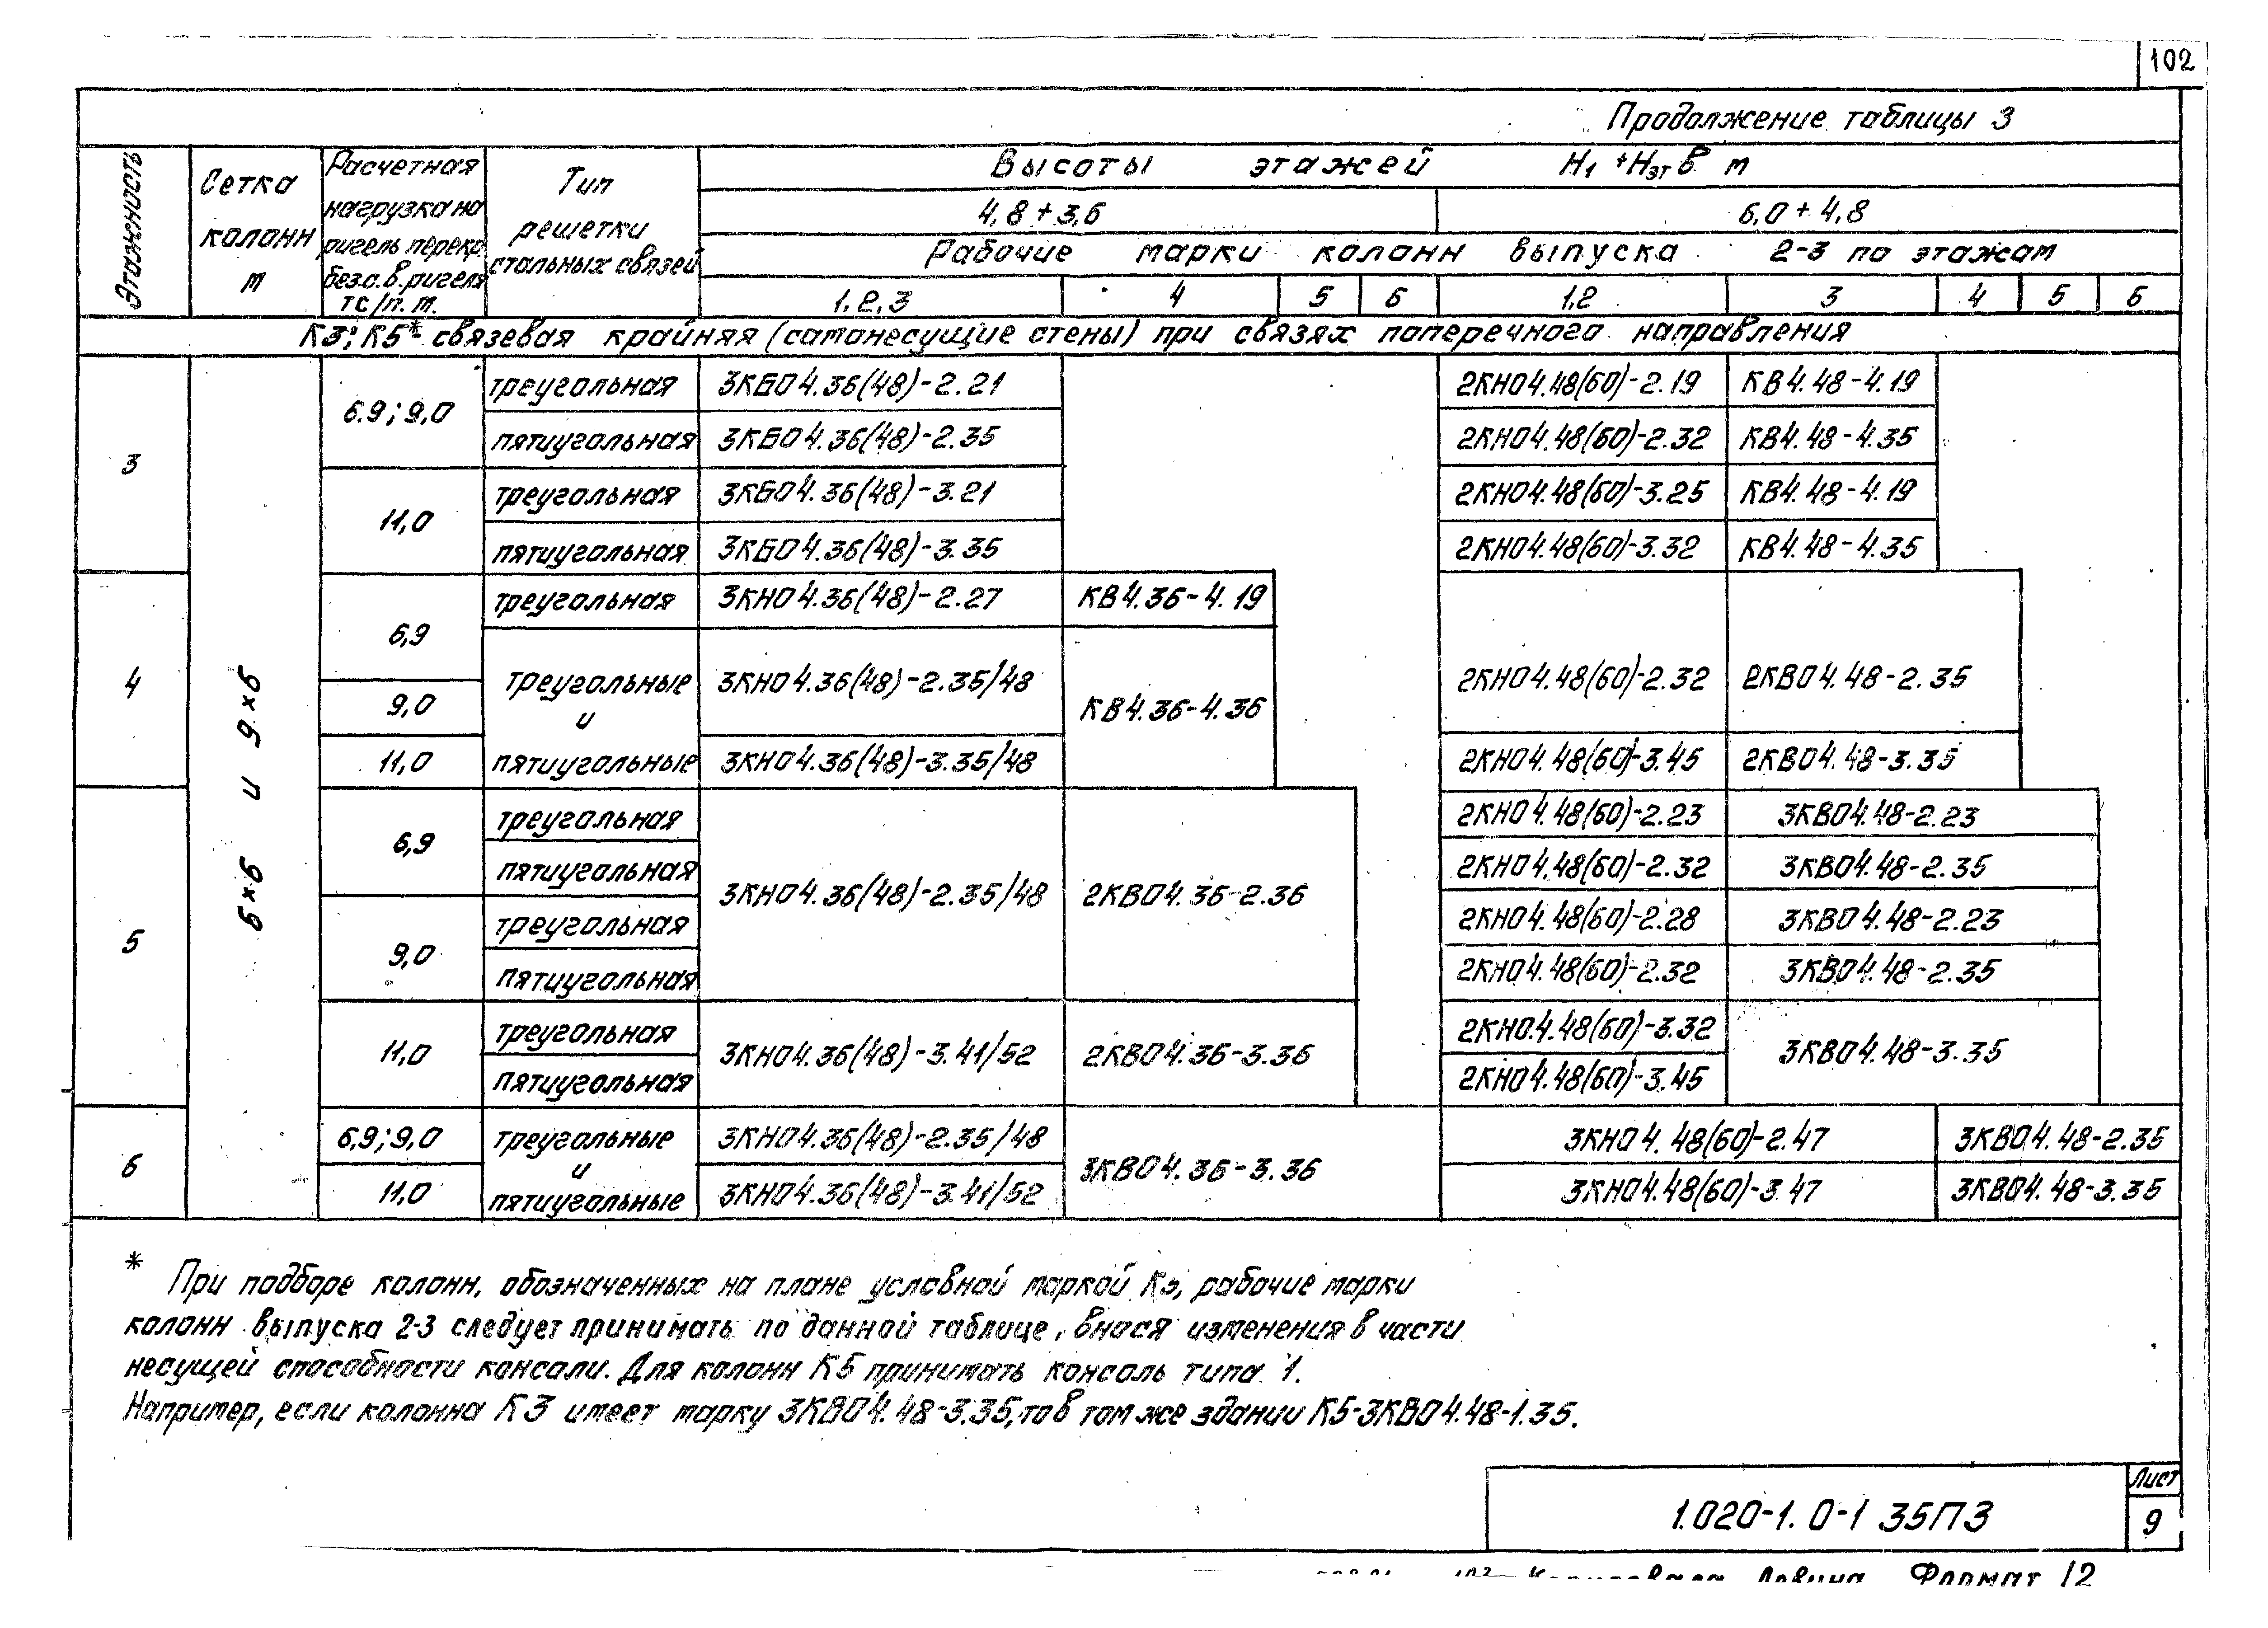 102
Продолжение таблицы 3
Этажность
Сетка колонн м
Расчетная нагрузка на ригель перекр. без с.в. ригеля тс/п.м.
Тип решетки стальных связей
Высоты этажей H1 + Hэт в м
4,8 + 3,6 6,0 + 4,8
Рабочие марки колонн выпуска 2-3 по этажам
1,2,3 4 5 6 1,2 3 4 5 6
К3; К5* - связевая крайняя (самонесущие стены) при связях поперечного направления
3 6×6 и 9×6 6.9; 9,0 треугольная 3КБО4.36(48)-2.21 2КНО4.48(60)-2.19 КВ4.48-4.19
пятиугольная 3КБО4.36(48)-2.35 2КНО4.48(60)-2.32 КВ4.48-4.35
11,0 треугольная 3КБО4.36(48)-3.21 2КНО4.48(60)-3.25 КВ4.48-4.19
пятиугольная 3КБО4.36(48)-3.35 2КНО4.48(60)-3.32 КВ4.48-4.35
4 6,9 треугольная 3КНО4.36(48)-2.27 КВ4.36-4.19
треугольные и пятиугольные 3КНО4.36(48)-2.35/48 КВ4.36-4.36 2КНО4.48(60)-2.32 2КВО4.48-2.35
9,0
11,0 3КНО4.36(48)-3.35/48 2КНО4.48(60)-3.45 2КВО4.48-3.35
5 6,9 треугольная 2КНО4.48(60)-2.23 3КВО4.48-2.23
пятиугольная 2КНО4.48(60)-2.32 3КВО4.48-2.35
3КНО4.36(48)-2.35/48 2КВО4.36-2.36
9,0 треугольная 2КНО4.48(60)-2.28 3КВО4.48-2.23
пятиугольная 2КНО4.48(60)-2.32 3КВО4.48-2.35
11,0 треугольная 3КНО4.36(48)-3.41/52 2КВО4.36-3.36 2КНО4.48(60)-3.32 3КВО4.48-3.35
пятиугольная 2КНО4.48(60)-3.45
6 6,9; 9,0 треугольные и пятиугольные 3КНО4.36(48)-2.35/48 3КВО4.36-3.36 3КНО4.48(60)-2.47 3КВО4.48-2.35
11,0 3КНО4.36(48)-3.41/52 3КНО4.48(60)-3.47 3КВО4.48-3.35
* При подборе колонн, обозначенных на плане условной маркой К5, рабочие марки
колонн выпуска 2-3 следует принимать по данной таблице, внося изменения в части
несущей способности консоли. Для колонн К5 принимать консоль типа 1.
Например, если колонна К3 имеет марку 3КВО4.48-3.35, то в том же здании К5-3КВО4.48-1.35.
1.020-1. 0-1 35ПЗ
Лист
9
Копировала Формат 12